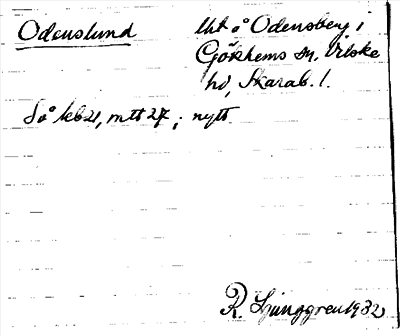 Odenslund
lht å Odensberg i
Gökhems sn, Vilske
hd, Skarab. l.
Så kbl, mtt 27; nytt.
R. Ljunggren 1932